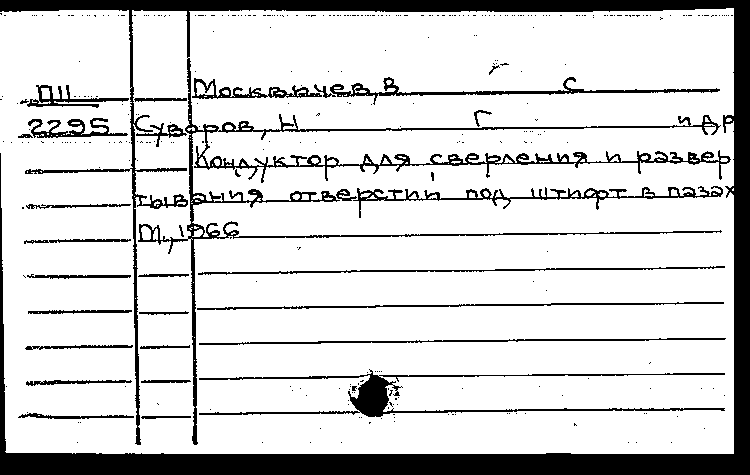 П11 Москвичев, В С
2295 Суворов, Н Г и др
Кондуктор для сверления и развер
тывания отверстий под штифт в пазах
М., 1966